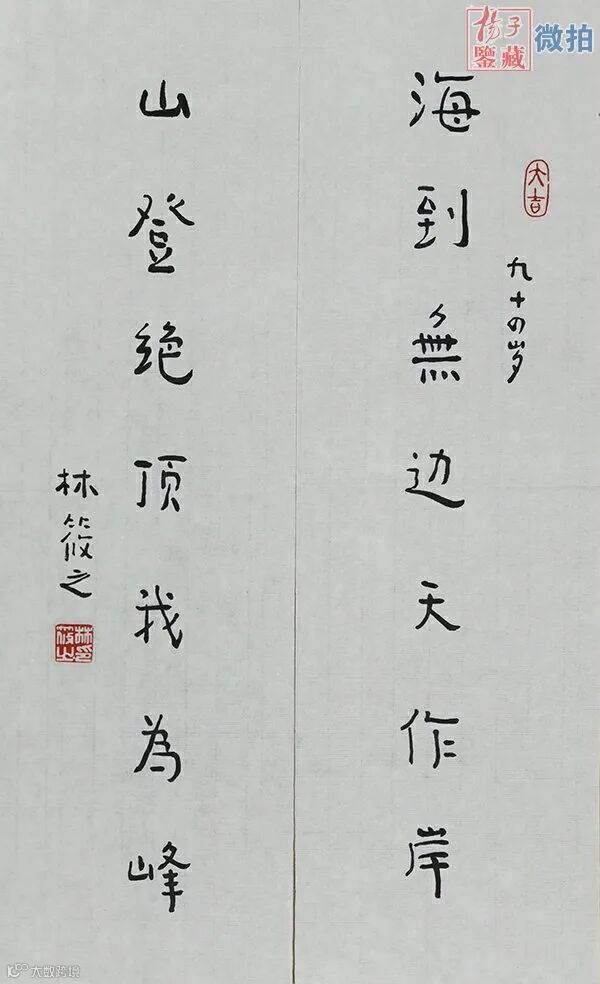 杨子
鑒藏
微拍
大吉
九十四岁
海到無边天作岸
山登绝顶我為峰
林筱之
林筱之印
大数跨境